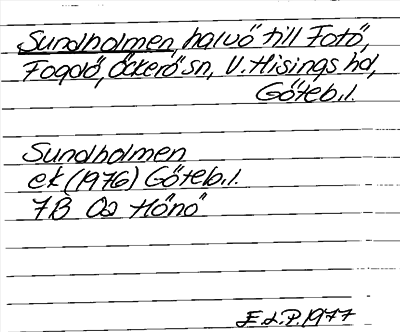 Sundholmen, halvö till Fotö,
Fogdö, Öckerö sn, V. Hisings hd,
Göteb.l.
Sundholmen
ek (1976) Göteb.l.
7B Oa Hönö
E.L.P. 1977